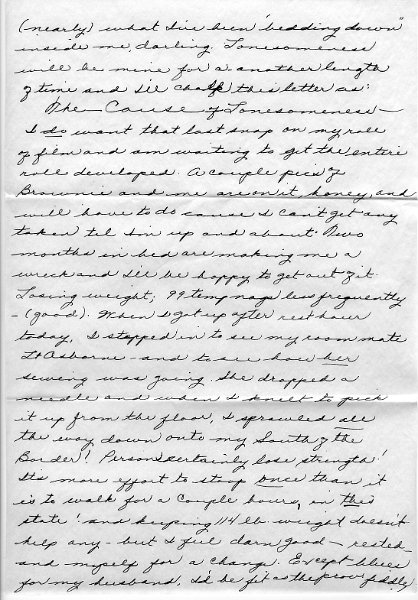 (nearly) what I've been "bedding down"
inside me, darling. Lonesomeness
will be mine for a another length
of time and I'll chalk this letter as:
The — Cause of Lonesomeness —
I do want that last snap on my roll
of film and am waiting to get the entire
roll developed. A couple pics of
Brownie and me are on it, honey, and
will have to do cause I can't get any
taken til I'm up and about. Two
months in bed are making me a
wreck and I'll be happy to get out of it.
Losing weight, 99 temp nags less frequently
- (good). When I got up after rest hour
today, I stepped in to see my room mate
Lt Osborne - and to see how her
sewing was going. She dropped a
needle and when I knelt to pick
it up from the floor, I sprawled all
the way down onto my South of the
Border! Persons certainly lose strength!
Its more effort to stoop once than it
is to walk for a couple hours, in this
state! and keeping 114 lb weight doesn't
help any - but I feel darn good - rested -
and myself for a change. Except blues
for my husband, I'd be fit as the prov. fiddle,